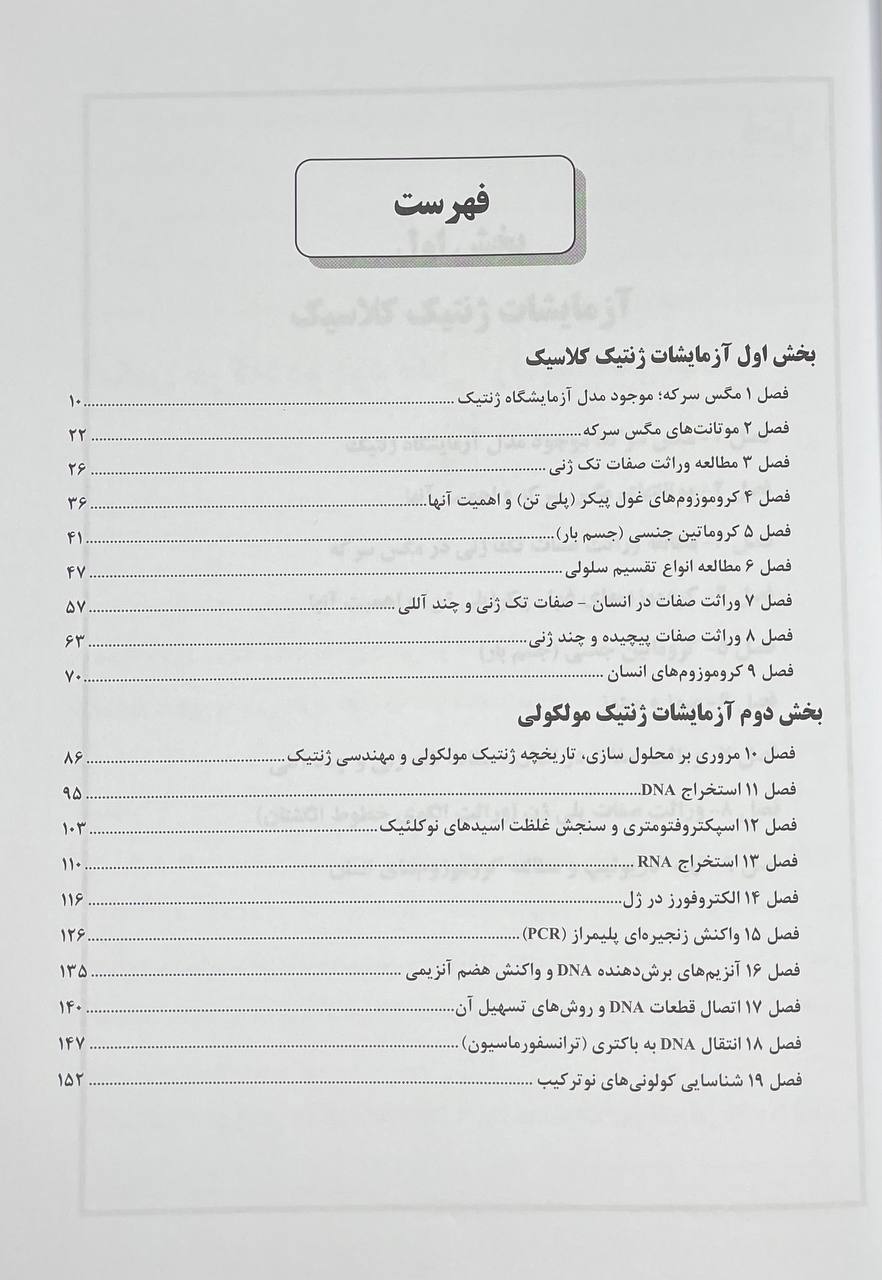 فهرست
بخش اول آزمایشات ژنتیک کلاسیک
فصل ۱ مگس سرکه؛ موجود مدل آزمایشگاه ژنتیک ........ ۱۰
فصل ۲ موتانت‌های مگس سرکه ........ ۲۲
فصل ۳ مطالعه وراثت صفات تک ژنی ........ ۲۶
فصل ۴ کروموزوم‌های غول پیکر (پلی تن) و اهمیت آنها ........ ۳۶
فصل ۵ کروماتین جنسی (جسم بار) ........ ۴۱
فصل ۶ مطالعه انواع تقسیم سلولی ........ ۴۷
فصل ۷ وراثت صفات در انسان - صفات تک ژنی و چند آللی ........ ۵۷
فصل ۸ وراثت صفات پیچیده و چند ژنی ........ ۶۳
فصل ۹ کروموزوم‌های انسان ........ ۷۰
بخش دوم آزمایشات ژنتیک مولکولی
فصل ۱۰ مروری بر محلول سازی، تاریخچه ژنتیک مولکولی و مهندسی ژنتیک ........ ۸۶
فصل ۱۱ استخراج DNA ........ ۹۵
فصل ۱۲ اسپکتروفتومتری و سنجش غلظت اسیدهای نوکلئیک ........ ۱۰۳
فصل ۱۳ استخراج RNA ........ ۱۱۰
فصل ۱۴ الکتروفورز در ژل ........ ۱۱۶
فصل ۱۵ واکنش زنجیره‌ای پلیمراز (PCR) ........ ۱۲۶
فصل ۱۶ آنزیم‌های برش‌دهنده DNA و واکنش هضم آنزیمی ........ ۱۳۵
فصل ۱۷ اتصال قطعات DNA و روش‌های تسهیل آن ........ ۱۴۰
فصل ۱۸ انتقال DNA به باکتری (ترانسفورماسیون) ........ ۱۴۷
فصل ۱۹ شناسایی کولونی‌های نوترکیب ........ ۱۵۲